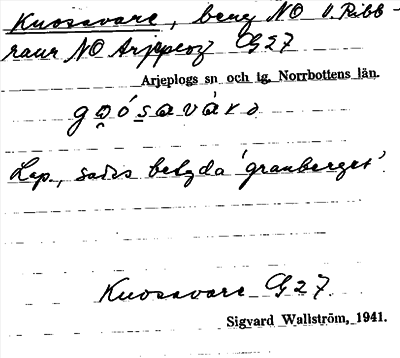 Kuossavare, berg NO v. Ribb-
raur NO Arjeplog G27
Arjeplogs sn och tg. Norrbottens län.
Lap., sades betyda 'granberget'.
Kuossavare G27.
Sigvard Wallström, 1941.